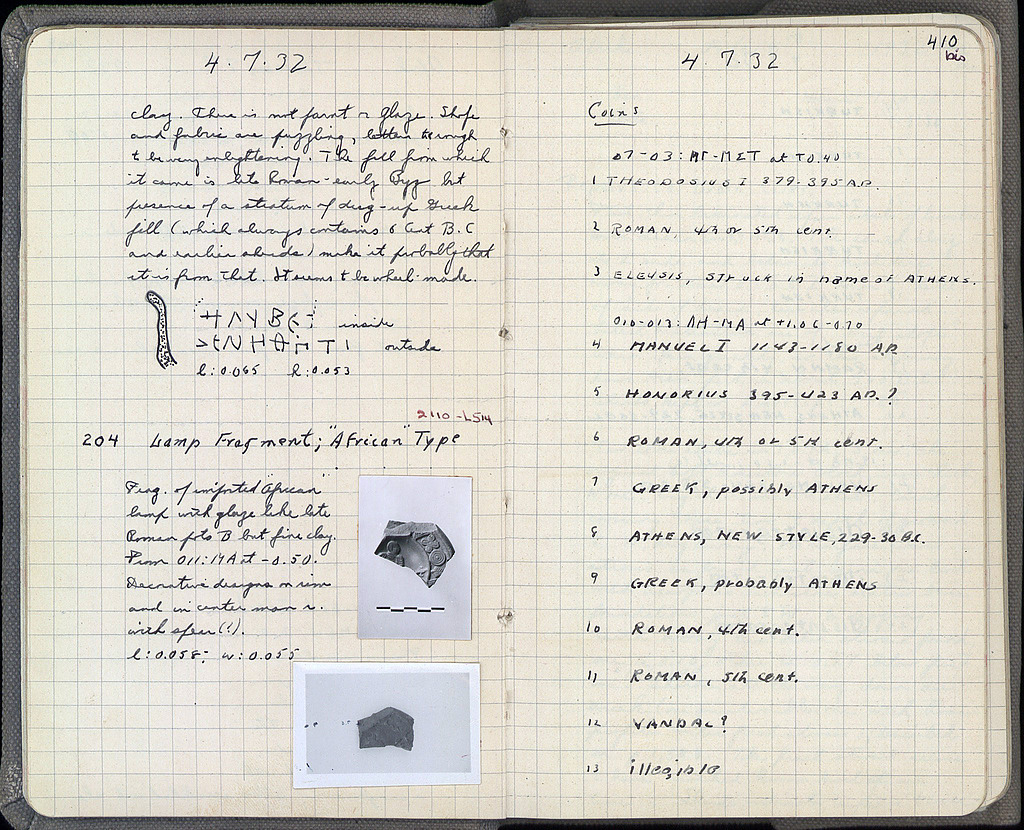 4.7.32
clay. There is not paint or glaze. Shape
and fabric are puzzling, letters enough
to be very enlightening. The fill from which
it came is late Roman-early Byz but
presence of a stratum of dug-up Greek
fill (which always contains 6 Cent B.C
and earlier sherds) make it probably that
it is from that. It seems to be wheel-made.
inside
outside
l:0.065 h:0.053
2110-L514
204 Lamp Fragment; "African" Type
Frag. of imported "African"
lamp with glaze like late
Roman pots B but fine clay.
From 011:14A at -0.50.
Decorative designs on rim
and in center man r.
with spear(?).
l:0.058; w:0.055
410
bis
4.7.32
Coins
07-03: at T0.40
1 THEODOSIUS I 379-395 A.D.
2 ROMAN, 4th or 5th cent.
3 ELEUSIS, STRUCK in name of ATHENS.
010-013: ΛH-MA at +1.06-0.70
4 MANUEL I 1143-1180 A.D.
5 HONORIUS 395-423 A.D.?
6 ROMAN, 4th or 5th cent.
7 GREEK, possibly ATHENS
8 ATHENS, NEW STYLE, 229-30 B.C.
9 GREEK, probably ATHENS
10 ROMAN, 4th cent.
11 ROMAN, 5th cent.
12 VANDAL?
13 illegible